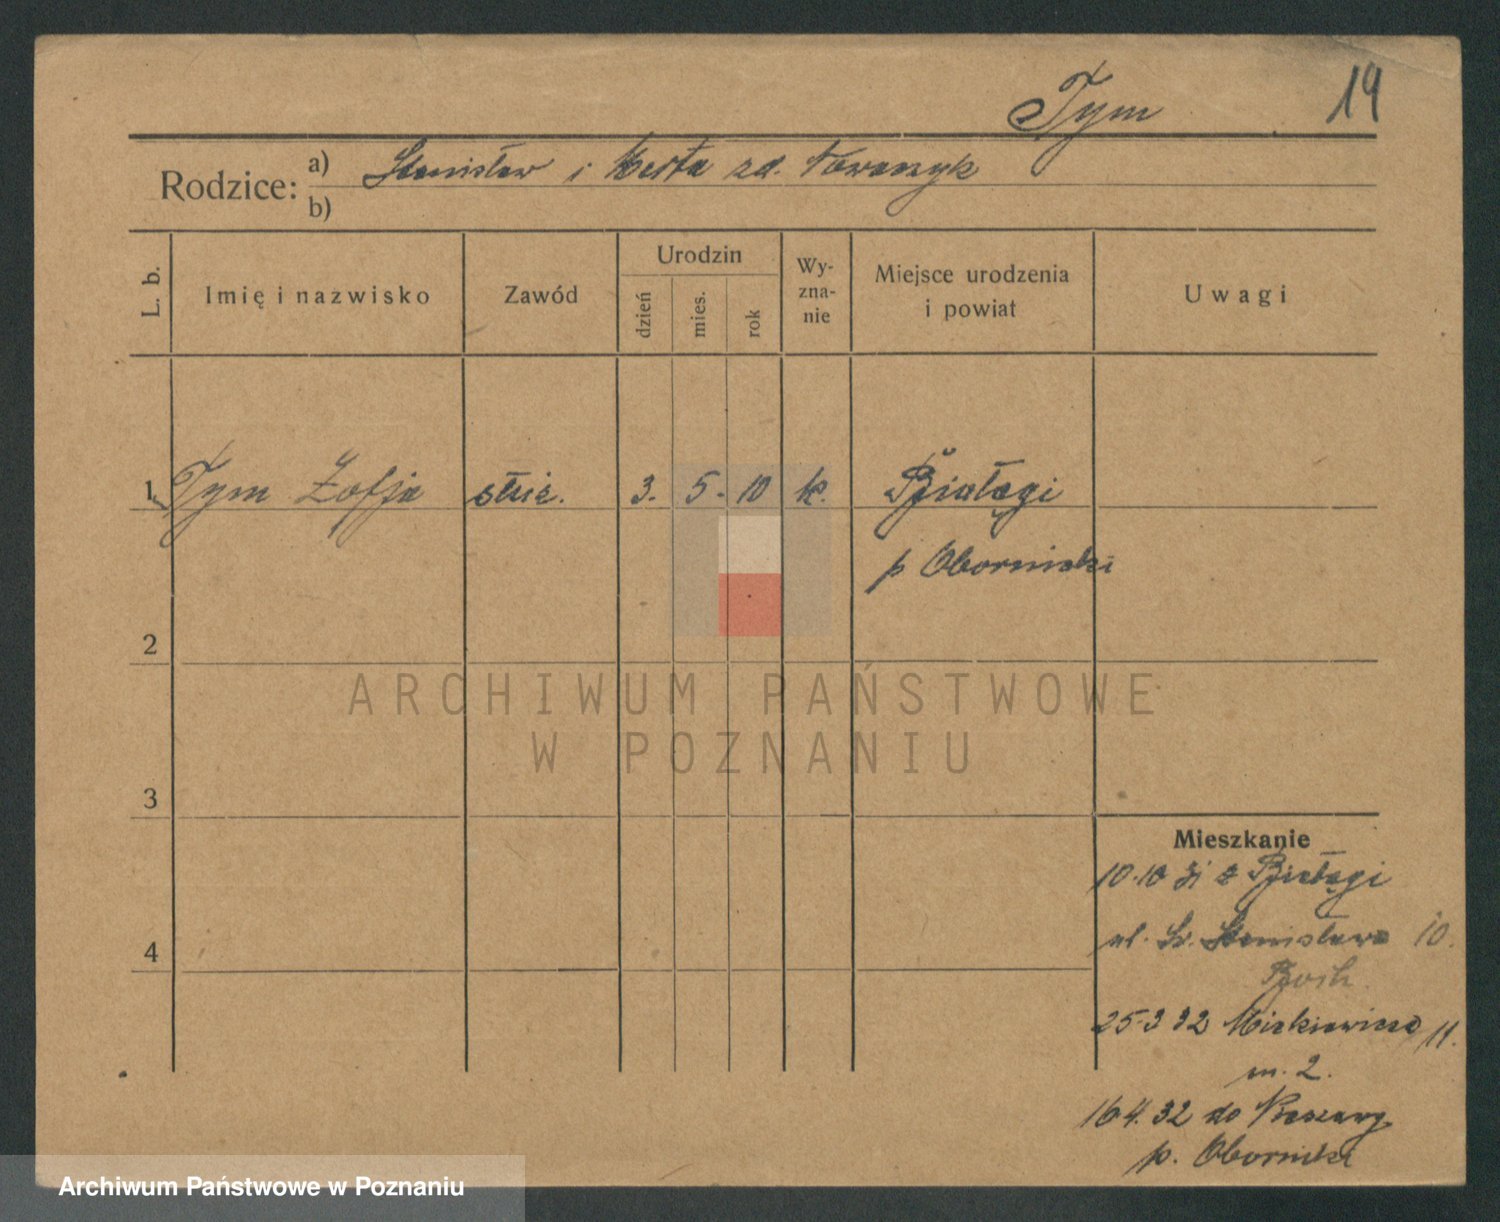 Tym 19
Rodzice: a) Stanisław i Marta zd. Nowaczyk
b)
L. b. Imię i nazwisko Zawód Urodzin dzień mies. rok Wy-zna-nie Miejsce urodzenia i powiat Uwagi
1 Tym Zofja służ. 3. 5. 10 k. Białęgi
p Obornicki
2
ARCHIWUM PAŃSTWOWE
W POZNANIU
3
Mieszkanie
10.10 31 z Białęgi
4 ul. Św. Stanisława 10.
25.3 32 Mickiewicza 11.
m. 2.
16.4.32 do
p. Obornicki
Archiwum Państwowe w Poznaniu